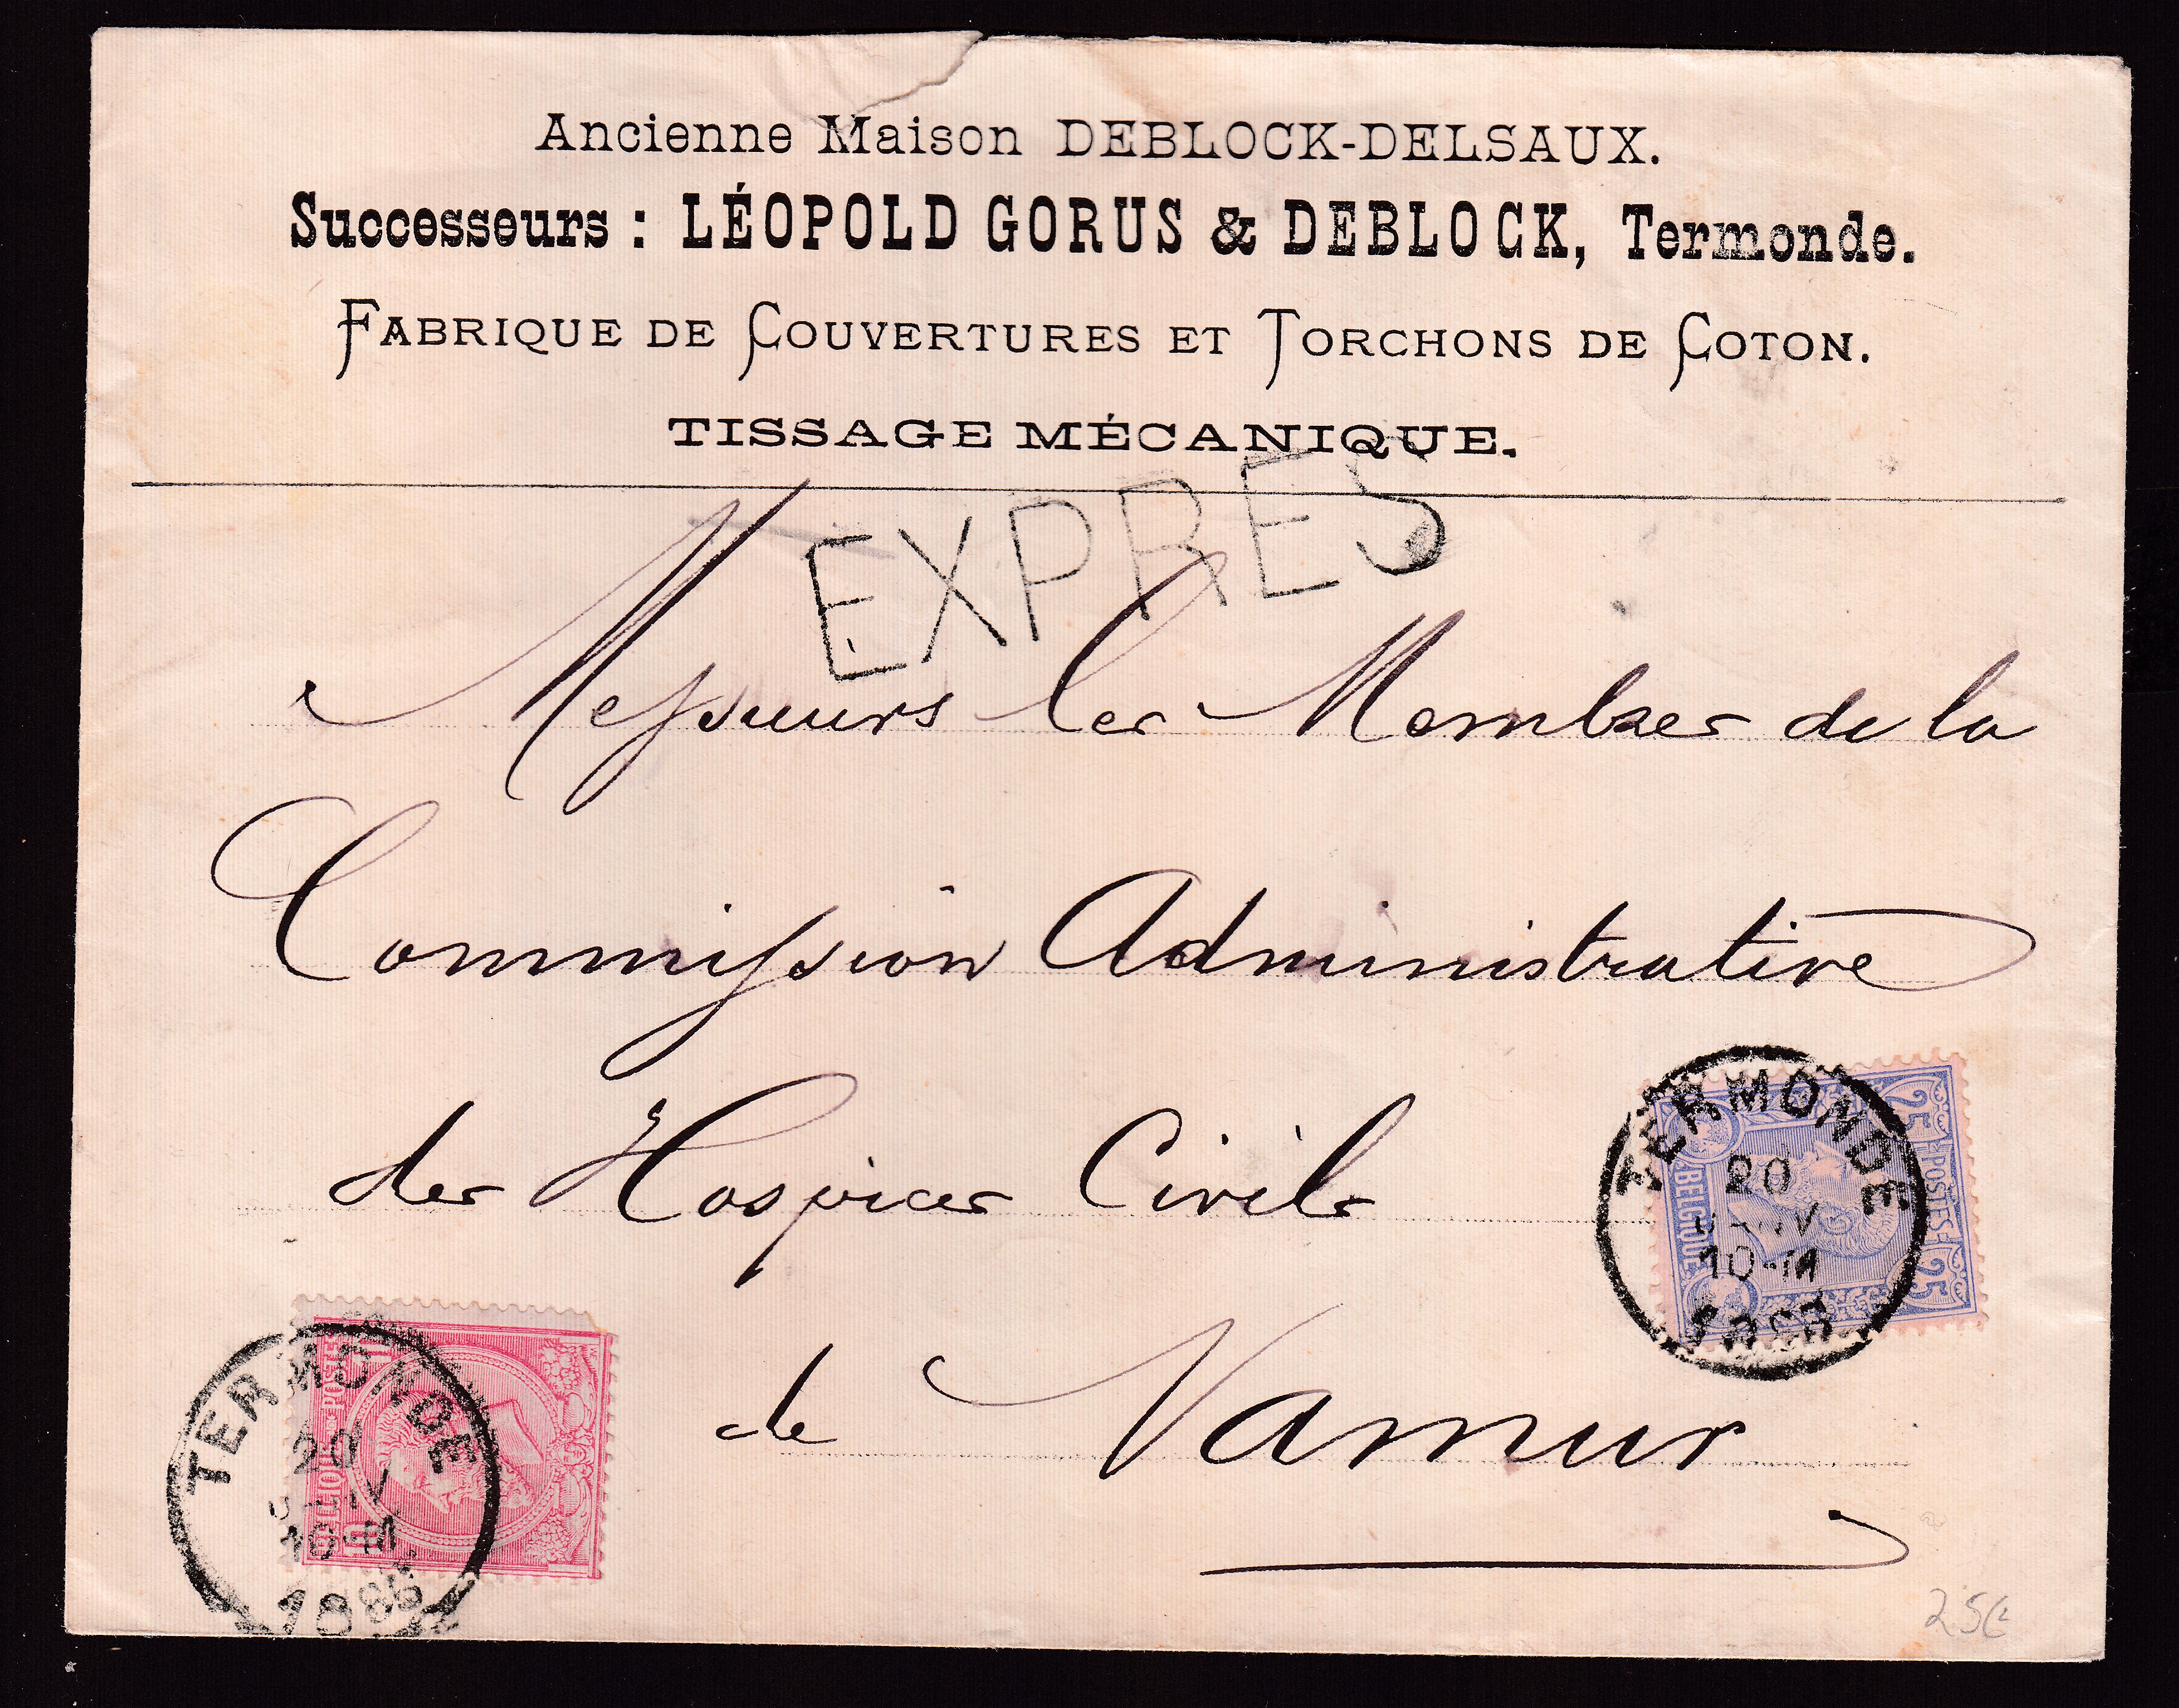 Ancienne Maison DEBLOCK-DELSAUX.
Successeurs : LÉOPOLD GORUS & DEBLOCK, Termonde.
FABRIQUE DE COUVERTURES ET TORCHONS DE COTON.
TISSAGE MÉCANIQUE.
EXPRES
Messieurs les Membres de la
Commission Administrative
des Hospices Civils
de Namur
TERMONDE
20
10-M
25 POSTES 25
BELGIQUE
TERMONDE
20
10-M
POSTES
25€